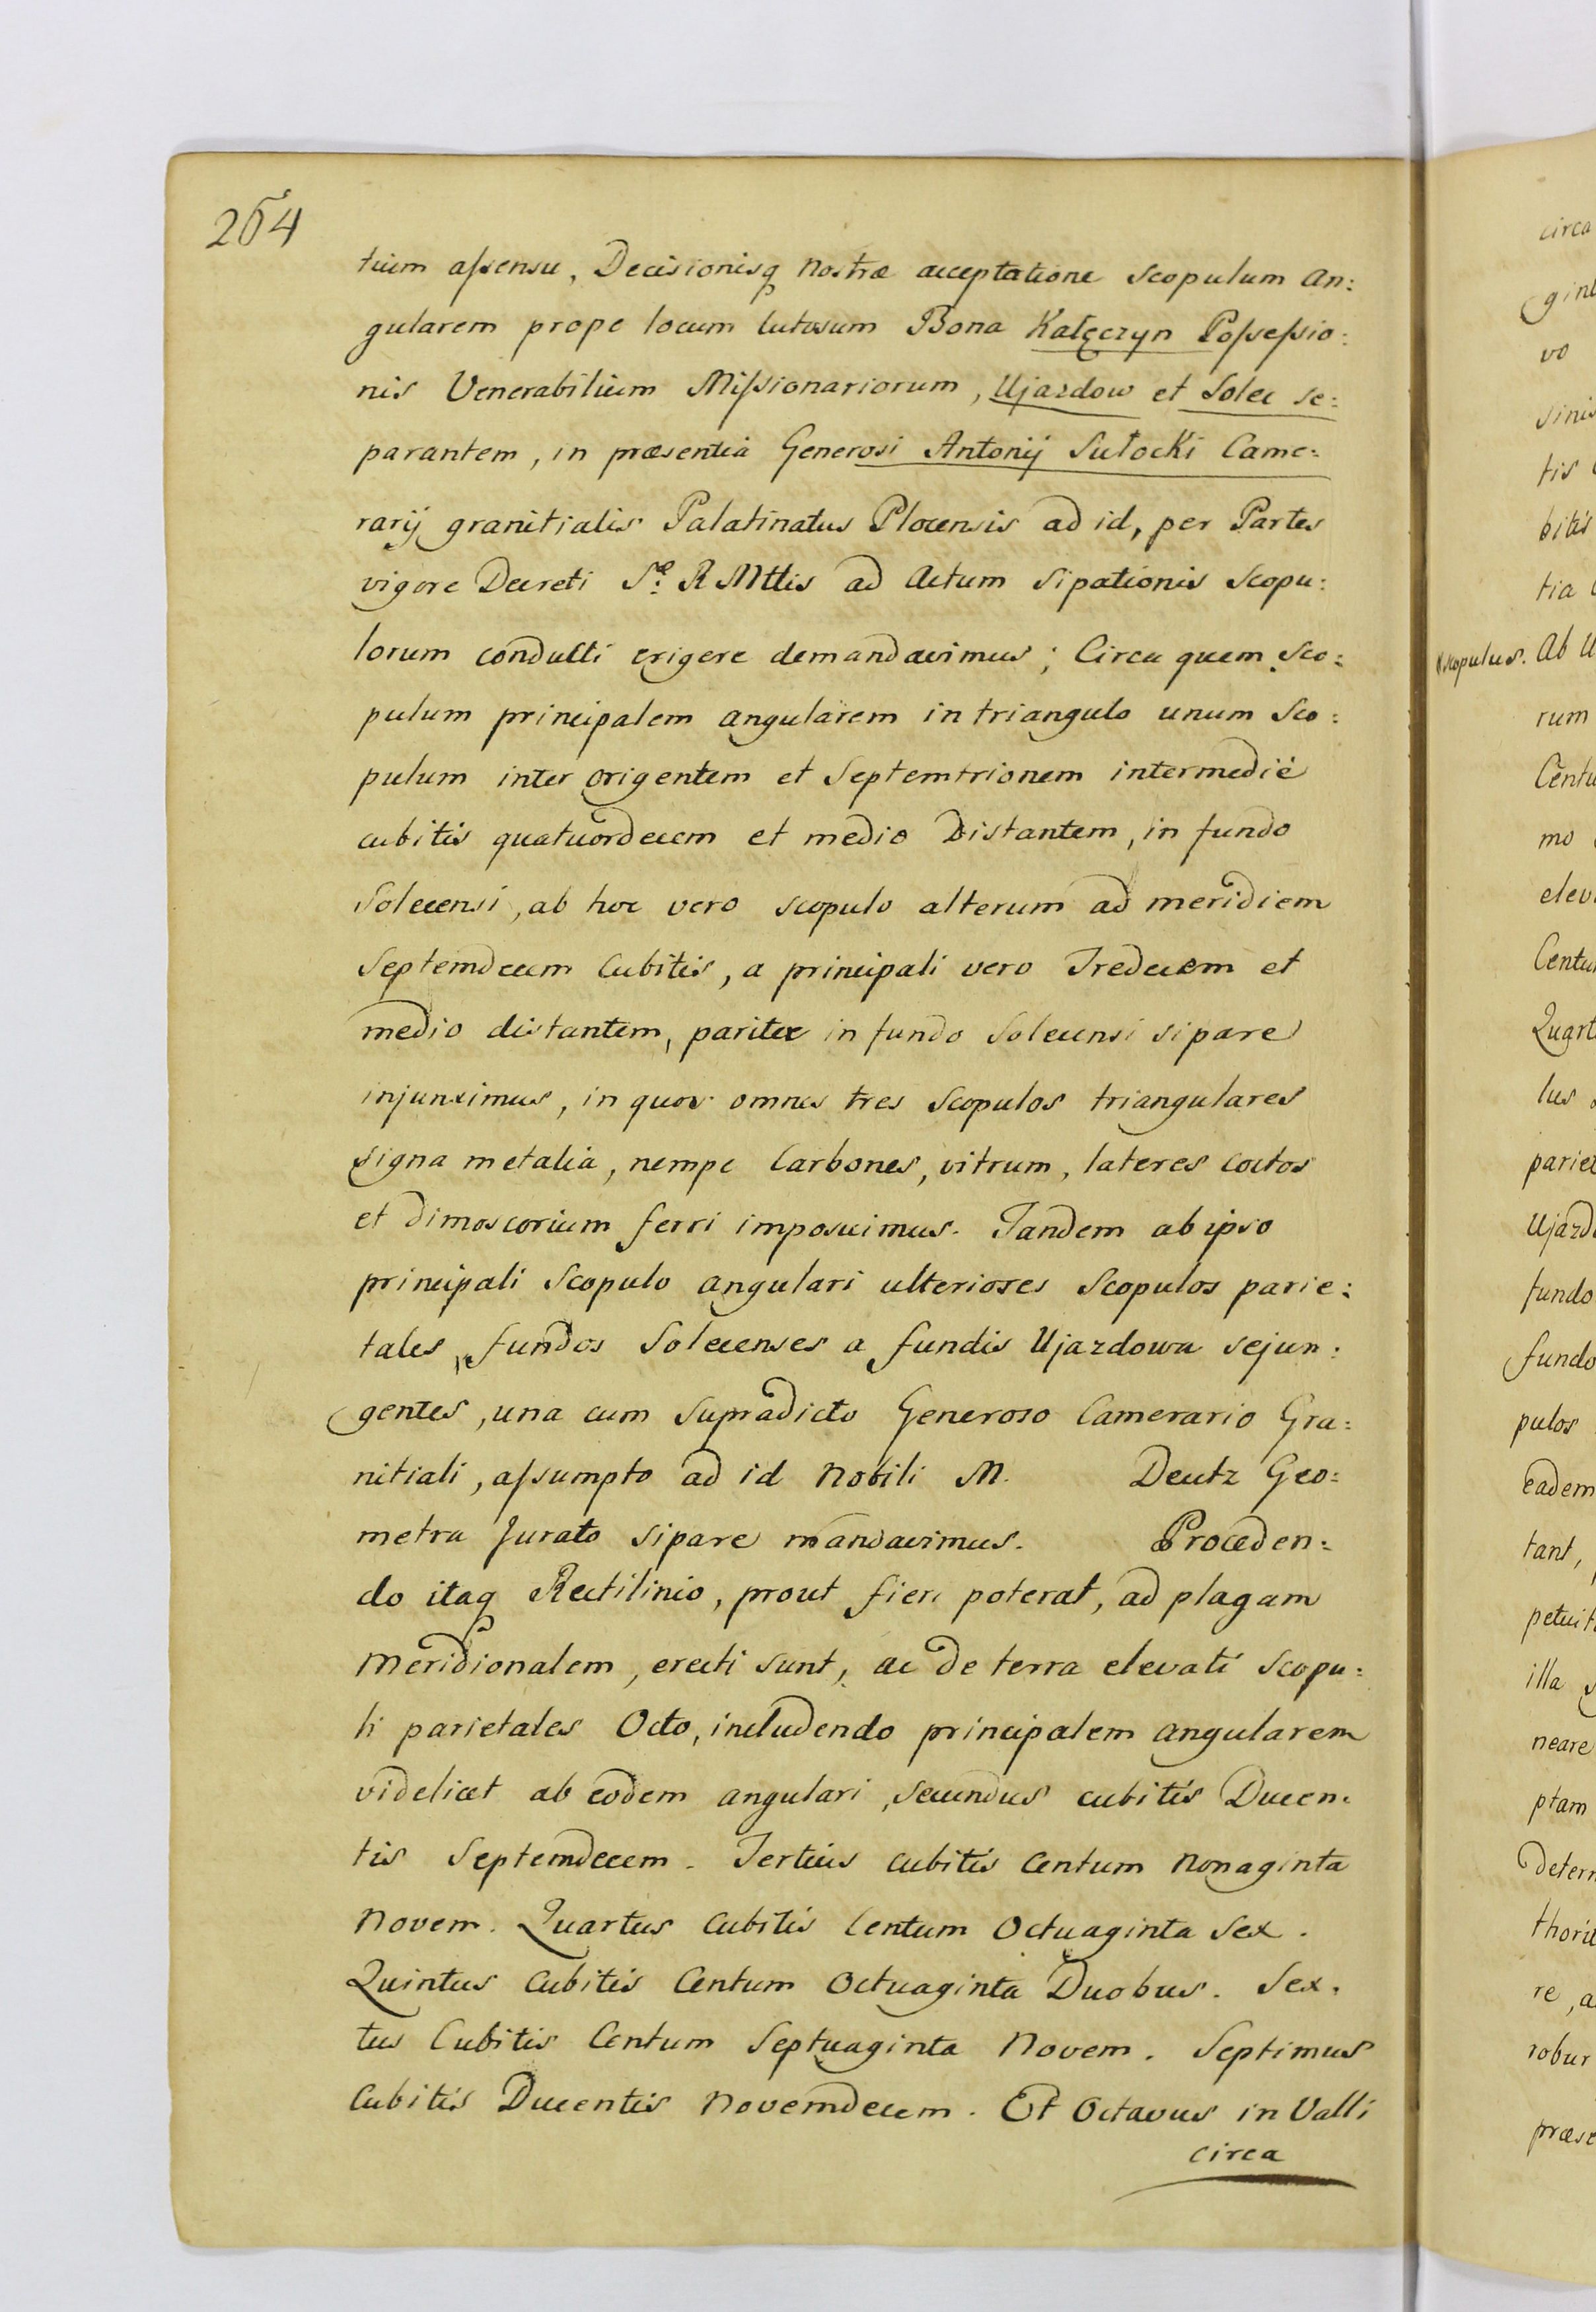 264
tium assensu, Decisionisq nostræ acceptatione Scopulum An:
gularem prope locum lutosum Bona Kałęczyn Possessio:
nis Venerabilium Missionariorum, Ujazdow et Solec se:
parantem, in præsentia Generosi Antonij Sułocki Came:
rarij granitialis Palatinatus Plocensis ad id, per Partes
vigore Decreti S: R Mttis ad Actum Sipationis Scopu:
lorum conducti erigere demandavimus; Circa quem Sco:
pulum principalem angularem in triangulo unum Sco:
pulum inter origentem et Septemtrionem intermedié
cubitis quatuordecem et medio Distantem, in fundo
Solecensi, ab hoc vero scopulo alterum ad meridiem
Septemdecem Cubitis, a principali vero Tredecem et
medio distantem, pariter in fundo Solecensi sipare
injunximus, in quos omnes tres Scopulos triangulares
signa metalia, nempe Carbones, vitrum, lateres coctos
et dimoscorium ferri imposuimus. Tandem ab ipso
principali Scopulo angulari ulteriores Scopulos parie:
tales, fundos Solecenses a fundis Ujazdowa sejun:
gentes, una cum supradicto Generoso Camerario Gra:
nitiali, assumpto ad id Nobili M. Deutz Geo:
metra Jurato sipare mandavimus. Proceden:
do itaq Rectilinio, prout fieri poterat, ad plagam
Meridionalem, erecti sunt, ac de terra elevati Scopu:
li parietales Octo, includendo principalem angularem
videlicet ab eodem angulari, Secundus cubitis Ducen:
tis Septemdecem. Tertius cubitis Centum Nonaginta
Novem. Quartus Cubitis Centum Octuaginta Sex.
Quintus Cubitis Centum Octuaginta Duobus. Sex.
tus Cubitis Centum Septuaginta Novem. Septimus
Cubitis Ducentis Novemdecem. Et Octavus in Valli
circa
circa
gint
vo
sinis
tis
bitis
tia
scopulus. Ab U
rum
Centu
mo
elev
Centu
Quart
lus
pariet
Ujazd
fundo
fundo
pulos
eadem
tant,
petuit
illa
neare
ptam
Deterr
thorit
re, a
robur
præse